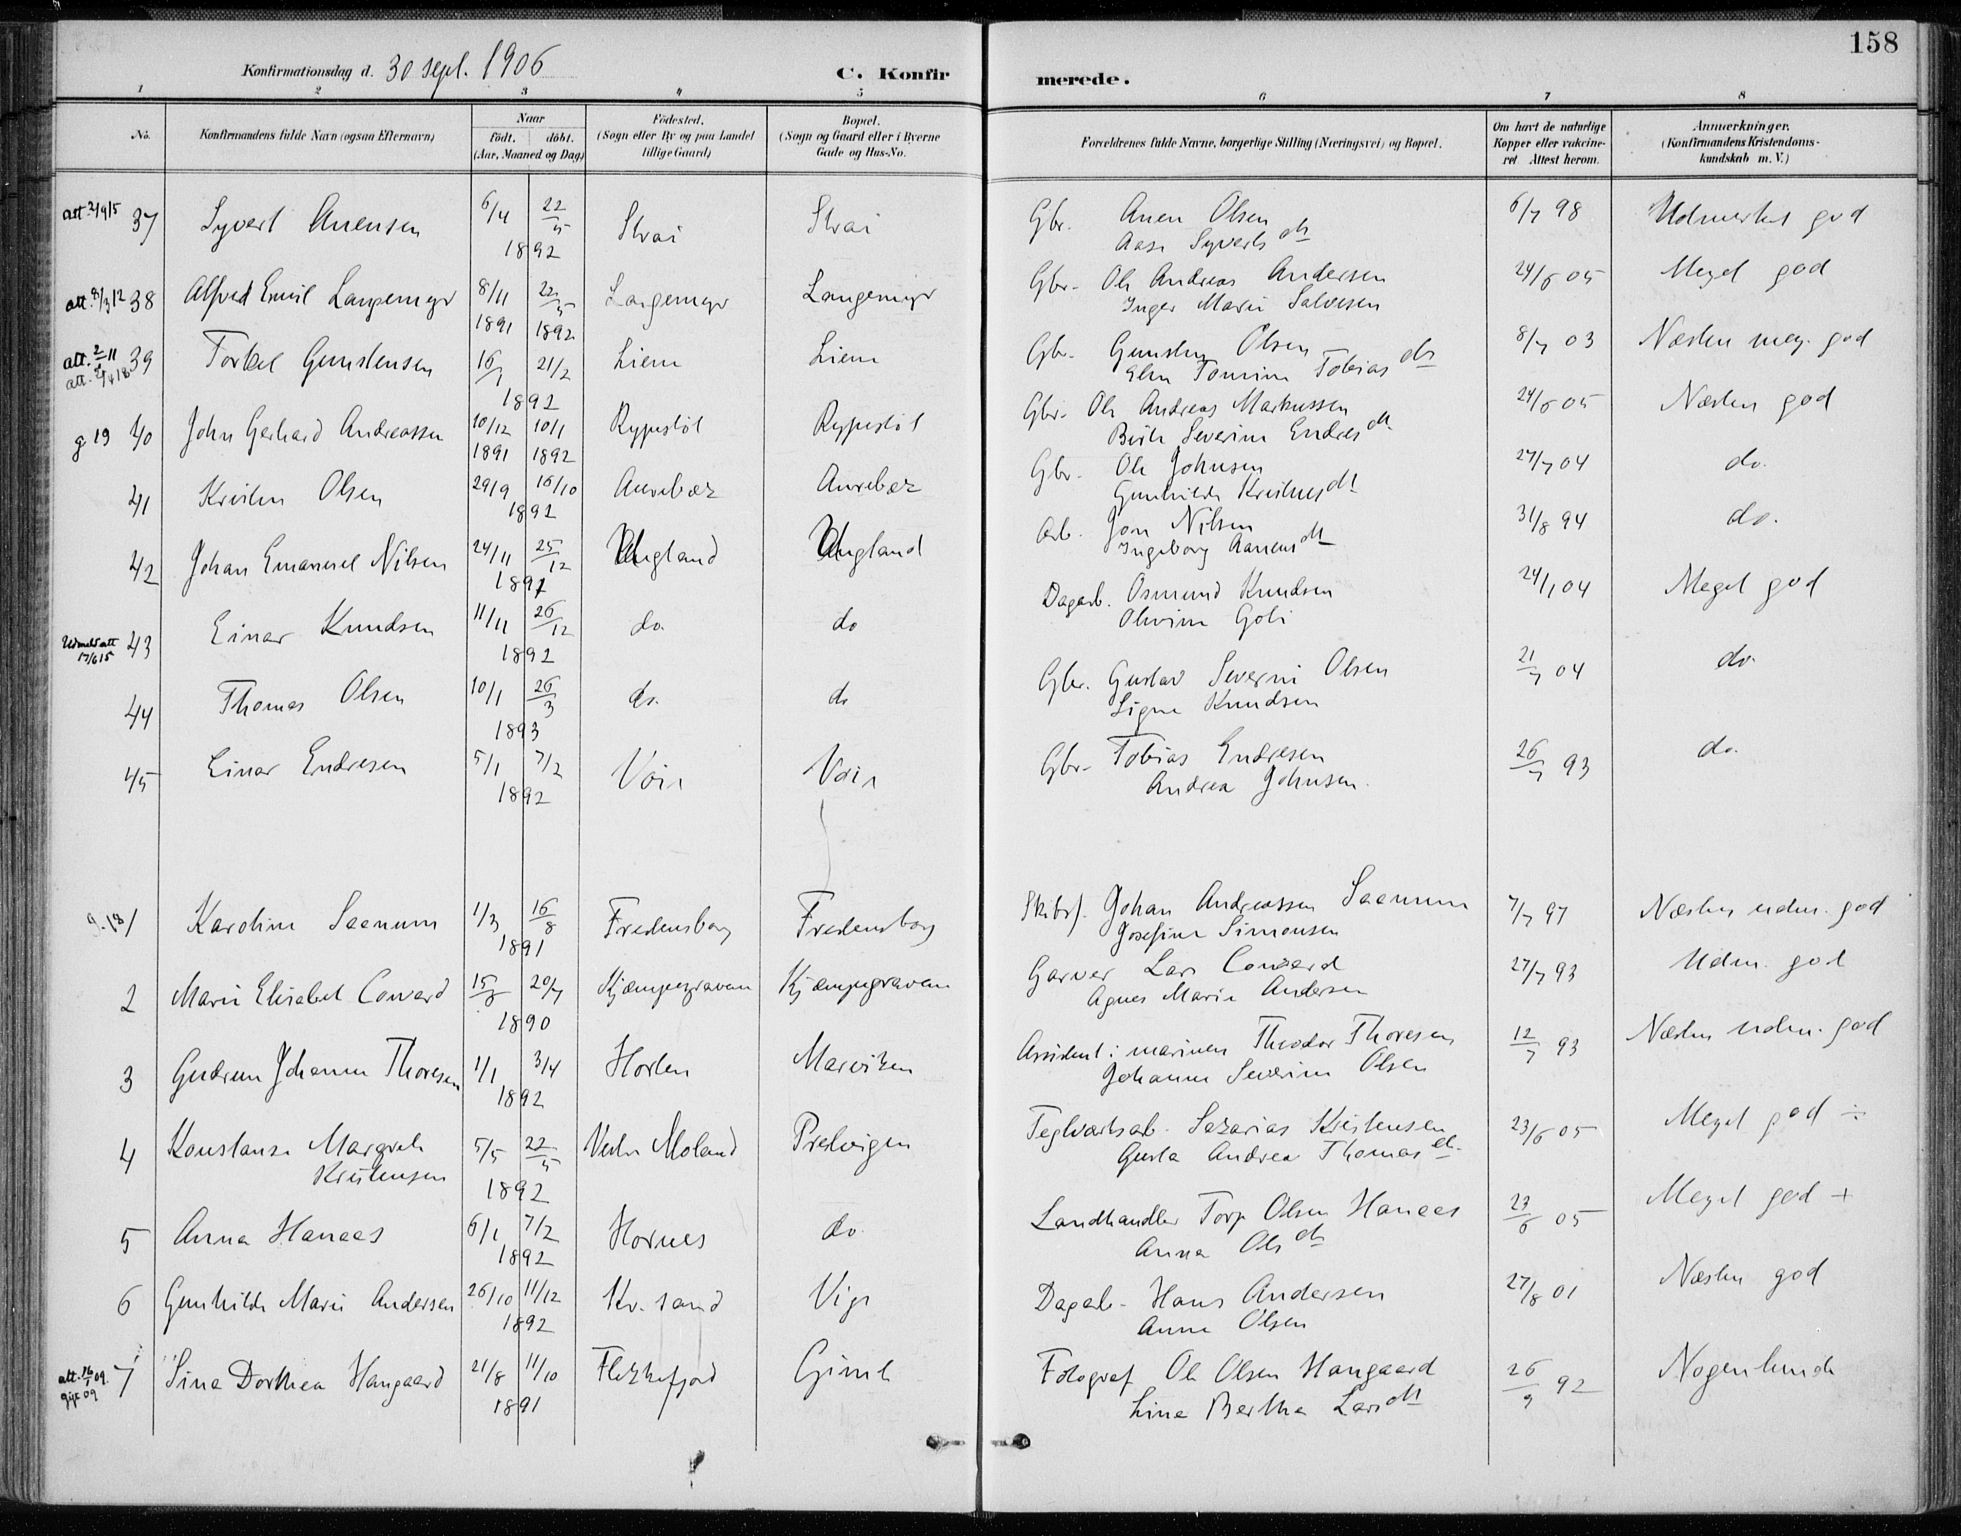 158
Konfirmationsdag d. 30 sept. 1906 C. Konfirmerede.
1 2 3 4 5 6 7 8
No. Konfirmandens fulde Navn (ogsaa Efternavn) Naar født. døbt. (Aar, Maaned og Dag) Fødested. (Sogn eller By og paa Landet tillige Gaard) Bopæl. (Sogn og Gaard eller i Byerne Gade og Hus-No. Forældrenes fulde Navne, borgerlige Stilling (Næringsvei) og Bopæl. Om havt de naturlige Kopper eller vaksineret Attest herom. Anmerkninger. (Konfirmandens Kristendomskundskab m. V.)
37 Syvert Anensen 6/4 22/5 1892 Strai Strai Gbr. Anen Olsen 6/7 98 Udmerket god
Aase Syvertsdt
38 Alfred Emil Langemyr 8/11 1891 22/5 1892 Langemyr Langemyr Gbr. Ole Andreas Andersen 24/6 05 Meget god
Inger Marie Salvesen
39 Torkel Gunstensen 16/1 21/2 1892 Liene Liene Gbr. Gunsten Olsen 8/7 03 Næsten meg. god
Elen Tomine Tobiasdt
g 19 40 John Gerhard Andreassen 10/12 1891 10/1 1892 Rypestøl Rypestøl Gbr. Ole Andreas Markussen 24/6 05 Næsten god
Berte Severine Endresdt
41 Kristen Olsen 29/9 16/10 1892 Aurebæk Aurebæk Gbr. Ole Johnsen 27/7 04 do.
Gunhilde Kristensdt
42 Johan Emanuel Nilsen 24/11 25/12 1891 Ungland Ungland Arb. Jon Nilsen 31/8 94 do.
Ingeborg Aanensdt
43 Einar Knudsen 11/11 26/12 1892 do. do Dagarb. Osmund Knudsen 24/1 04 Meget god
Olivine Goli
44 Thomas Olsen 10/1 26/3 1893 do. do Gbr. Gustav Severin Olsen 21/7 04 do.
Signe Knudsen
45 Einar Endresen 5/1 7/2 1892 Voie Voie Gbr. Tobias Endresen 26/7 93 do.
Andrea Johnsen
1 Karoline Saanum 1/3 16/8 1891 Fredensborg Fredensborg Skibsf. Johan Andreassen Saanum 7/7 97 Næsten udm. god
Josefine Simonsen
2 Marie Elisabet Conrard 15/8 20/7 1890 Kjæmpegraven Kjæmpegraven Garver Lars Conrard 27/7 93 Udm. god
Agnes Marie Andersen
3 Gudrun Johanne Thoresen 1/1 3/4 1892 Horten Marviken Assistent i marinen Theodor Thoresen 12/7 93 Næsten udm. god
Johanne Severine Olsen
4 Konstanse Margrete 5/5 22/5 1892 Vestre Moland Prestvigen Teglverksarb. Sakarias Kristensen 23/6 05 Meget god ÷
Kristensen Gusta Andrea Thomasdt.
5 Anna Hanaas 6/1 7/2 1892 Hornes do. Landhandler Torje Olsen Hanaas 23/6 05 Meget god +
Anna Olsdt
6 Gunhilde Marie Andersen 26/10 11/12 1892 Kr.sand Vige Dagarb. Hans Andersen 27/8 01 Næsten god
Anne Olsen
7 Sina Dorthea Haugaard 21/8 11/10 1891 Flekkefjord Gimle Fotograf Ole Olsen Haugaard 26/9 92 Nogenlunde
Lina Bertha Larsdt